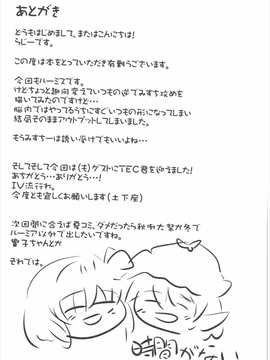 あとがき
どうもはじめまして、またはこんにちは!
うじーです。
この度は本をとっていただき有難うございます。
今回もルーミスです。
けどちょっと趣向変えていつもの逆でみすち攻めを
描いてみたのですけど…
脳内ではやってるうちにすぐいつもの形になってしまい
結局そのままアウトプットしてしまいました。
もうみすちーは誘い受けでもいいよね…
そしてそして今回は(も)ゲストにTEC君を迎えました!
ありがとう…ありがとう…!
IV流行れ。
今度とも宜しくお願いします(土下座)
次回間に合えば夏コミ、ダメだったら秋か大⑨か冬で
ルーミア以外で出したいですね。
雷子ちゃんとか
それでは。
時間がない